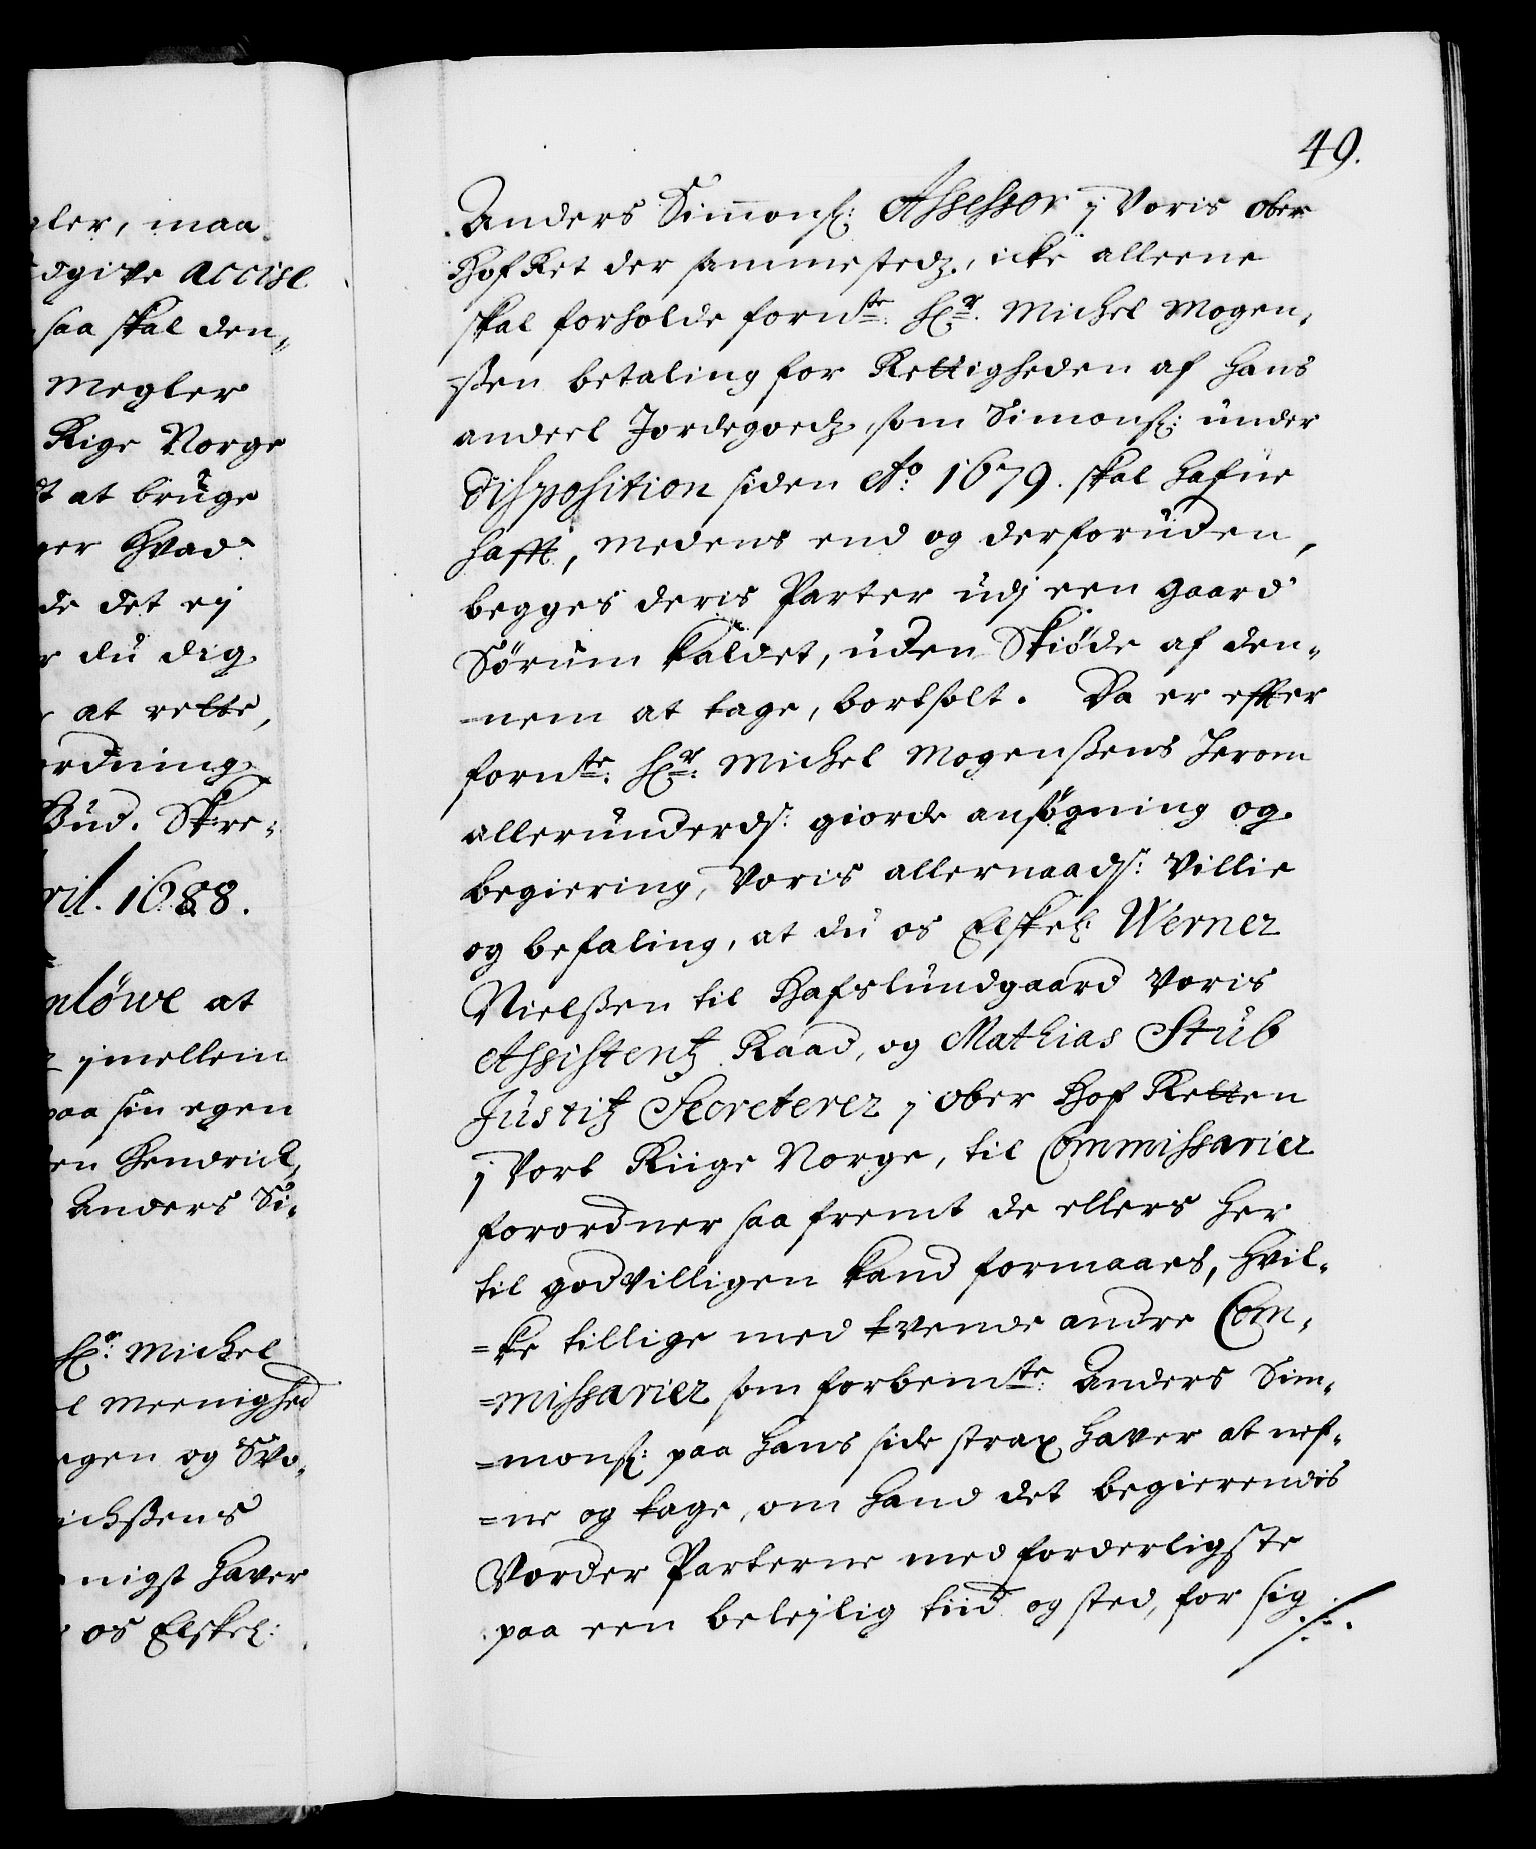 ler, maa
dgive Accise
saa skal den„
Megler
Rige Norge
at bruge
er Hvad
de det ej
du dig
at rette,
ordning.
Bud. Skre„
ril. 1688.
nlöwe at
jmellem
paa sin egen
en Hendrich
Anders Si„
Hr: Michel
l Meenighed
egen og Svo„
ichßens
nigst haver
os Elskel:
49.
Anders Simmons: Assessor j Voris ober
HofRet der sammestedz., icke alleene
skal forholde fornte: Hr: Michel Mogen„
=ßen betaling for Rettigheden af hans
andeel Jordegoedz, som Simons: under
disposition siden Ao: 1679. skal hafue
hafft, medens end og derforuden,
begges deris Parter udj een gaard
Sörum kaldet, uden Skiöde af den„
=nem at tage, bortsolt. Da er effter
fornte: Hr: Michel Mogenßens herom
allerunderds: giorde ansögning og
begiering, Voris allernaads: Villie
og befaling, at du os Elskel: Werner
Nielßen til Hafslundgaard Voris
Assistentz Raad, og Mathias Stub
Justitz Secreterer j ober Hof Retten
j Vort Riige Norge, til Commissarier
forordner saa fremt de ellers her
til godvilligen kand formaaes, hvil„
=ke tillige med tvende andre Com„
=missarier som forbemte: Anders Sim„
=mons: paa hans side strax haver at nef„
=ne og tage, om hand det begierendis
Vorder Parterne med forderligste
paa een belejlig tiid og sted, for sig